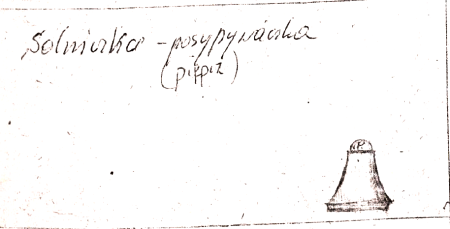 Solniczka - posypywaczka
(pieprz)
P